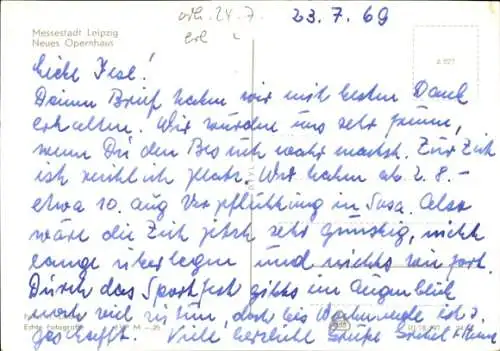 erh. 24.7.
23.7.69
Messestadt Leipzig
Neues Opernhaus
Liebe Ilse!
Deinen Brief haben wir mit bestem Dank
erhalten. Wir würden uns sehr freuen,
wenn Du den Besuch wahr machst. Zur Zeit
ist reichlich Platz. Wir haben ab 2. 8. -
etwa 10. Aug Verpflichtung in Also
wäre die Zeit jetzt sehr günstig, nicht
lange überlegen und nichts wie fort.
Durch das Sportfest gibts im Augenblick
noch viel zu tun, doch bis Wochenende ist
geschafft. Viele herzliche Grüße
Echte Fotografie